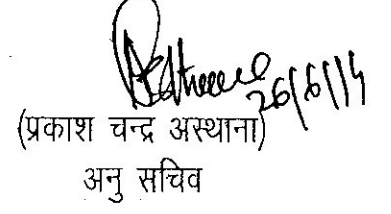 26/6/14
(प्रकाश चन्द्र अस्थाना)
अनु सचिव